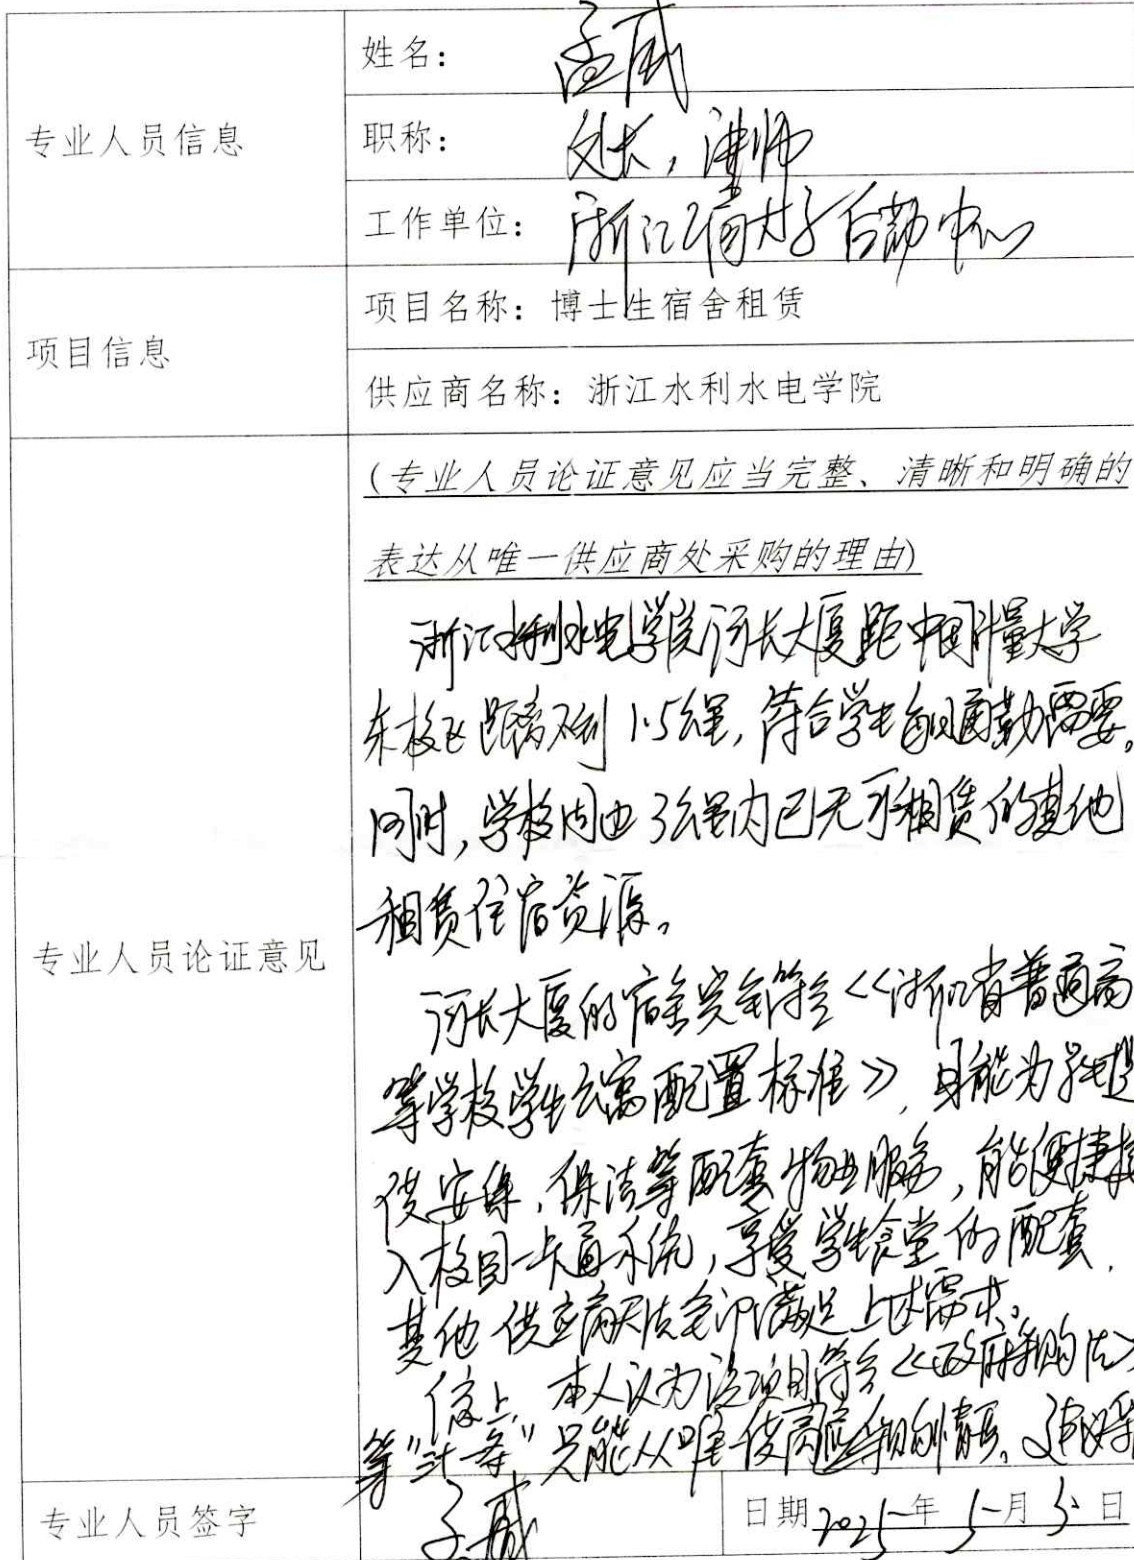 专业人员信息
姓名：孟威
职称：处长，讲师
工作单位：浙江工商大学后勤中心
项目信息
项目名称：博士生宿舍租赁
供应商名称：浙江水利水电学院
专业人员论证意见
(专业人员论证意见应当完整、清晰和明确的
表达从唯一供应商处采购的理由)
浙江水利水电学院河长大厦距中国计量大学
东校区距离不到1.5公里，符合学生每日通勤需要。
同时，学校周边3公里内已无可租赁的其他
租赁住宿资源。
河长大厦的宿舍完全符合《浙江省普通高
等学校学生公寓配置标准》，且能为学生提
供安保、保洁等配套物业服务，能便捷接
入校园一卡通系统，享受学生食堂的配套，
其他供应商无法全部满足上述需求。
综上，本人认为该项目符合《政府采购法》
第"卅一条"只能从唯一供应商采购的情形，
专业人员签字
孟威
日期 2025年5月5日